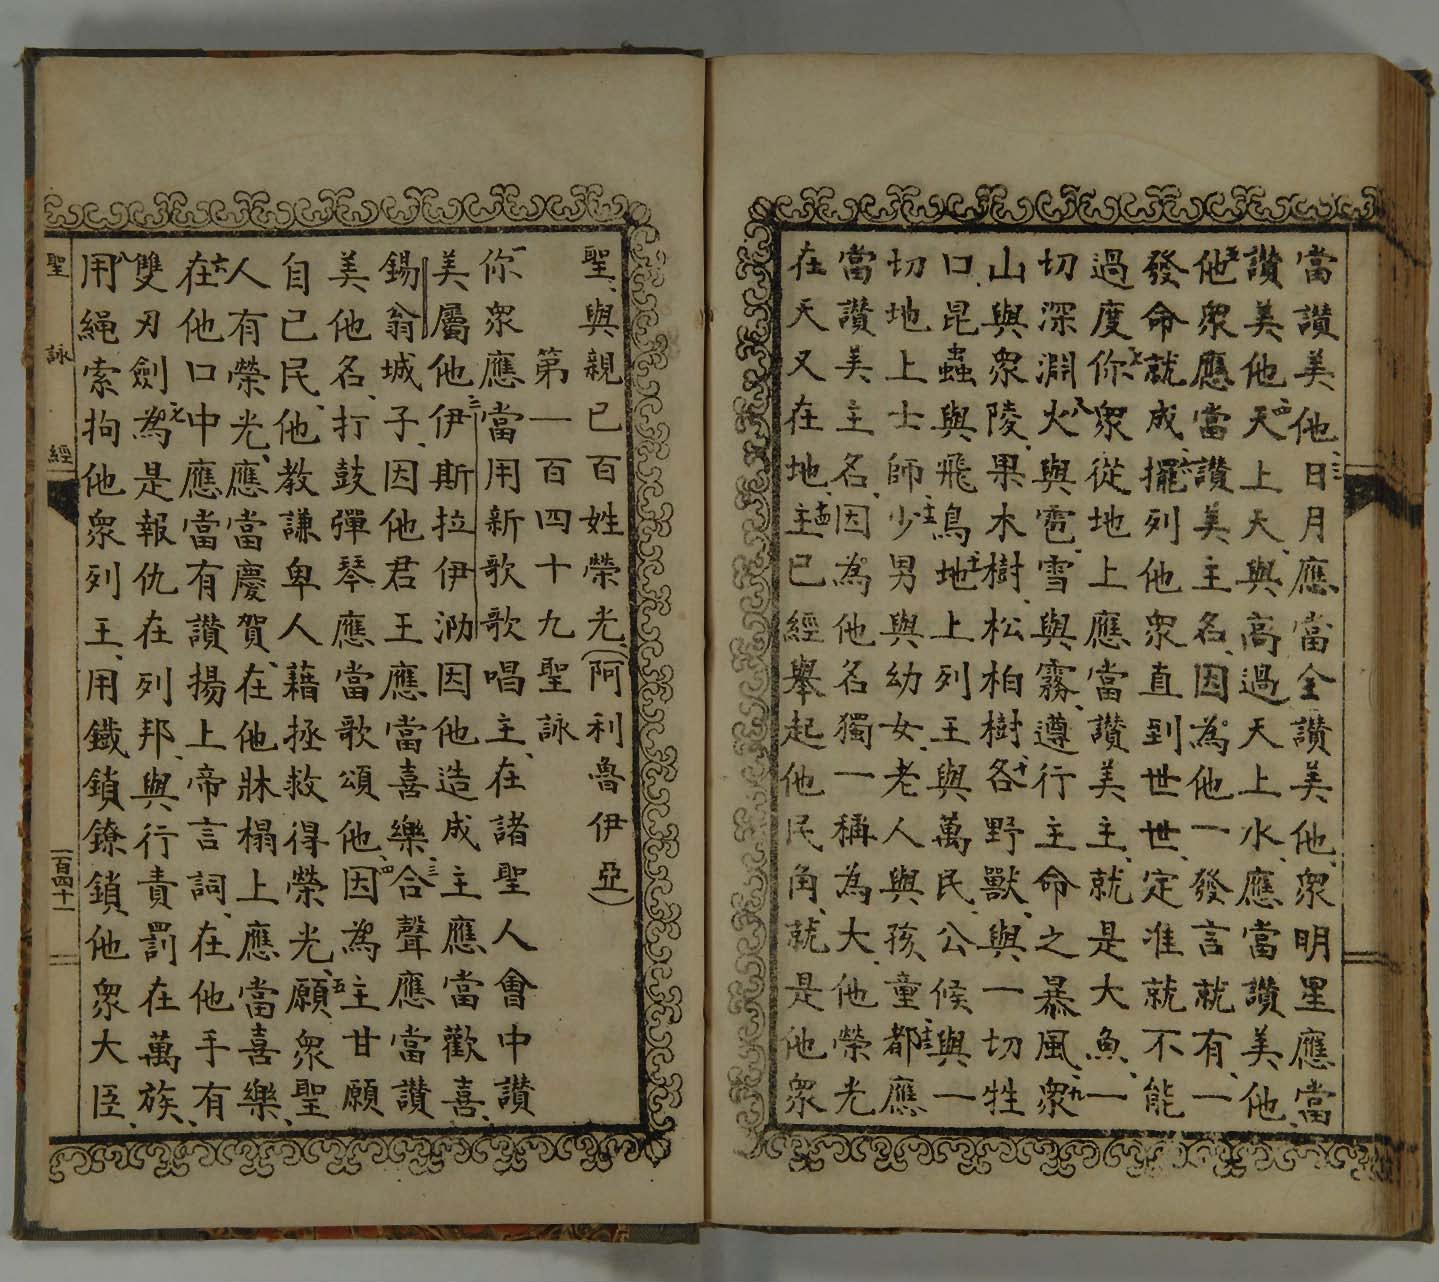 當讚美他、三日月應當全讚美他、衆明星應當
讚美他四天上天、與高過天上水、應當讚美他、
他五衆應當讚美主名、因為他一發言就有、一
發命就成、六擺列他衆直到世世、定准就不能
過度、七你衆從地上應當讚美主、就是大魚、一
切深淵、八火與雹、雪與霧、遵行主命之暴風、九衆
山與衆陵、果木樹松柏樹、十各野獸、與一切牲
口、昆蟲與飛鳥、十一地上列王與萬民、公候與一
切地上士師、十二少男與幼女、老人與孩童、十三都應
當讚美主名、因為他名獨一稱為大、他榮光
在天又在地、十四主已經舉起他民角、就是他衆
聖、與親已百姓榮光、(阿利魯伊亞)
第一百四十九聖詠
一你衆應當用新歌歌唱主、在諸聖人會中讚
美屬他、二伊斯拉伊泐因他造成主應當歡喜、
錫翁城子、因他君王應當喜樂、三合聲應當讚
美他名、打鼓彈琴應當歌頌他、四因為主甘願
自己民、他教謙卑人藉拯救得榮光、五願衆聖
人有榮光、應當慶賀、在他牀榻上應當喜樂、
六在他口中應當有讚揚上帝言詞、在他手有
雙刃劍、七為是報仇在列邦、與行責罰在萬族、
八用繩索拘他衆列王、用鐵鎖鐐鎖他衆大臣、
聖詠經
一百四十一